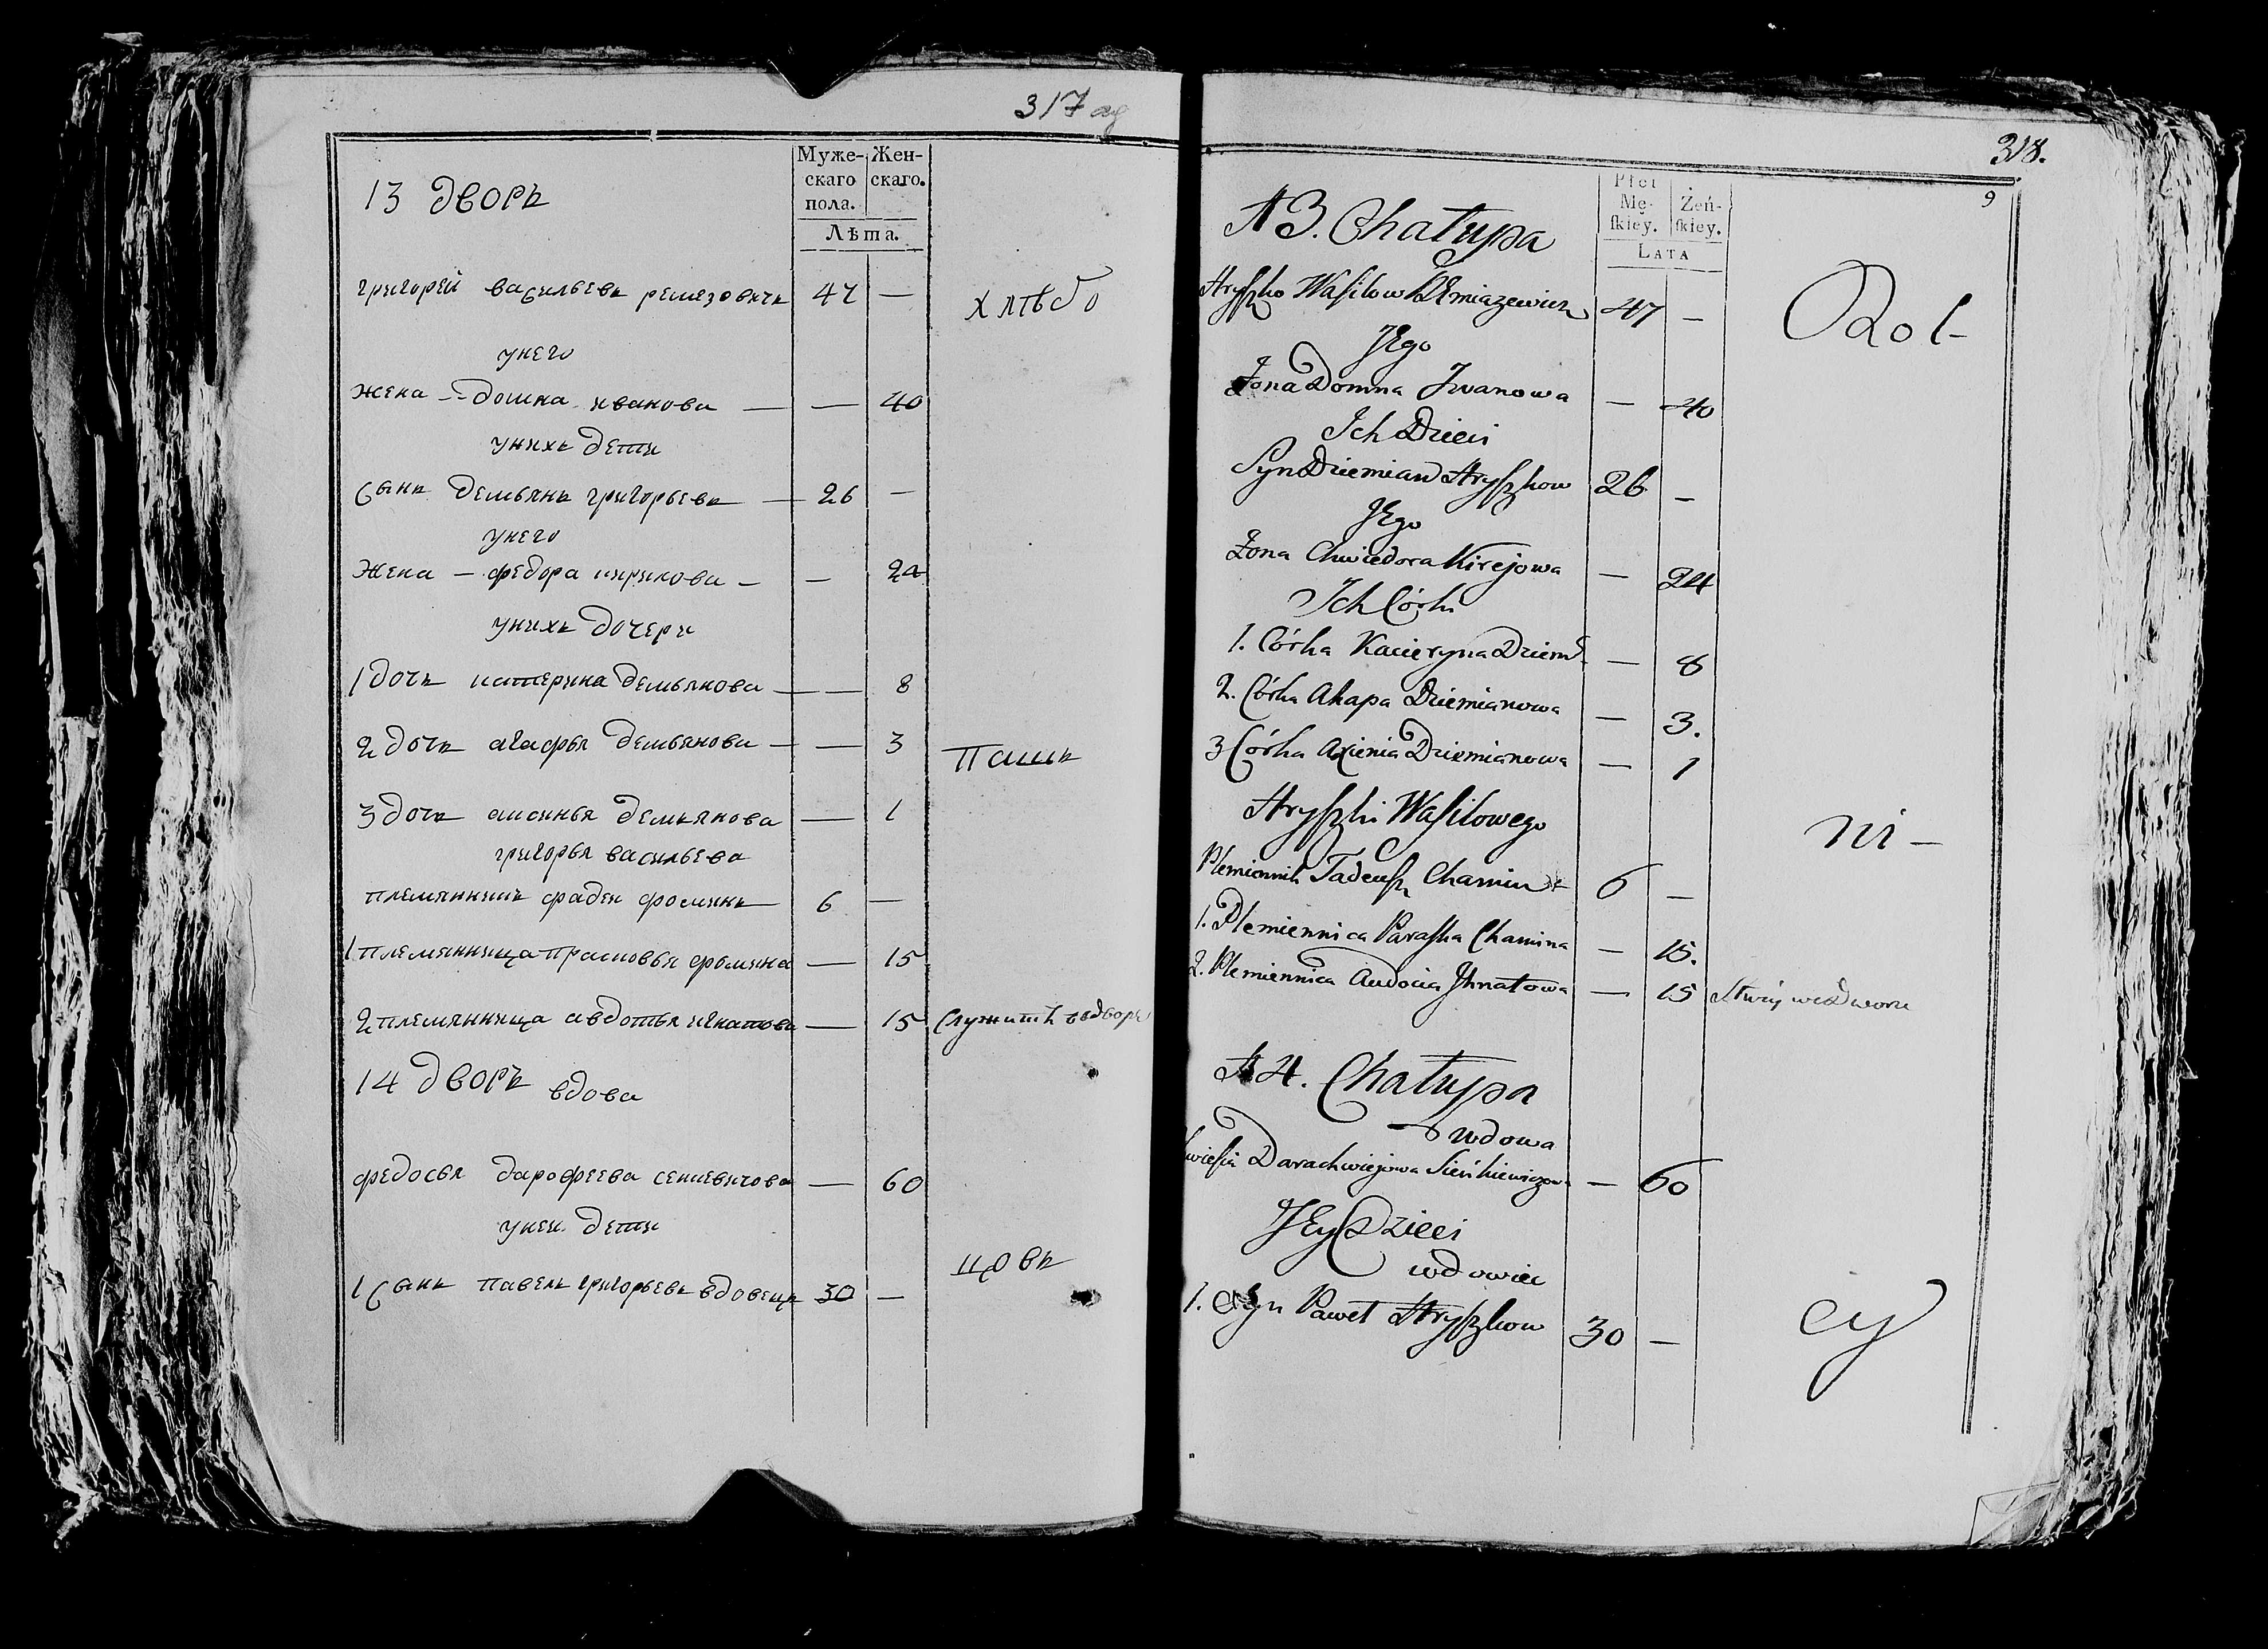 317 ад
Муже- Жен-
скаго скаго.
пола.
Лѣта.
13 дворъ
григорей васильевъ ремезовичъ 47 — хлѣбо
унего
жена — домна иванова — — 40
унихъ дети
сынъ демьянъ григорьевъ — 26 —
унего
жена — федора кирикова — — 24
унихъ дочери
1 дочь катерина демьянова — — 8
2 дочь агафья демьянова — — 3
пашь
3 дочь аксинья демьянова — 1
григорья васильева
племянникъ фадеи фоминъ 6 —
1 племянница прасковья фомина — 15
2 племянница авдотья игнатова — 15 служитъ водворе
14 дворъ вдова
федосья дарофеева сенкевичова — 60
унеи дети
цовъ
1 сынъ павелъ григорьевъ вдовецъ 30 —
318.
9
Płci
Mę- Żeń-
ſkiey. ſkiey.
LATA
13. Chałupa
Hryſzko Waſilow Remiazewicz 47 — Rol-
Jego
Żona Domna Jwanowa — 40
Ich Dzieci
Syn Dziemian Hryſzkow 26 —
Jego
Żona Chwiedora Kirejowa — 24
Ich Córki
1. Córka Kacieryna Dziem — 8
2. Córka Ahapa Dziemianowa — 3.
3 Córka Axienia Dziemianowa — 1
Hryſzki Waſilowego
ni-
Plemiennik Tadeuſz Chamin 6 —
1. Plemiennica Paraſka Chamina — 15.
2. Plemiennica Audocia Jhnatowa — 15 Służy we Dworze
14. Chałupa
wdowa
Darachwiejowa Sieńkiewiczowa — 60
Jey Dzieci
wdowiec
1. Syn Paweł Hryſzkow 30 —
cy